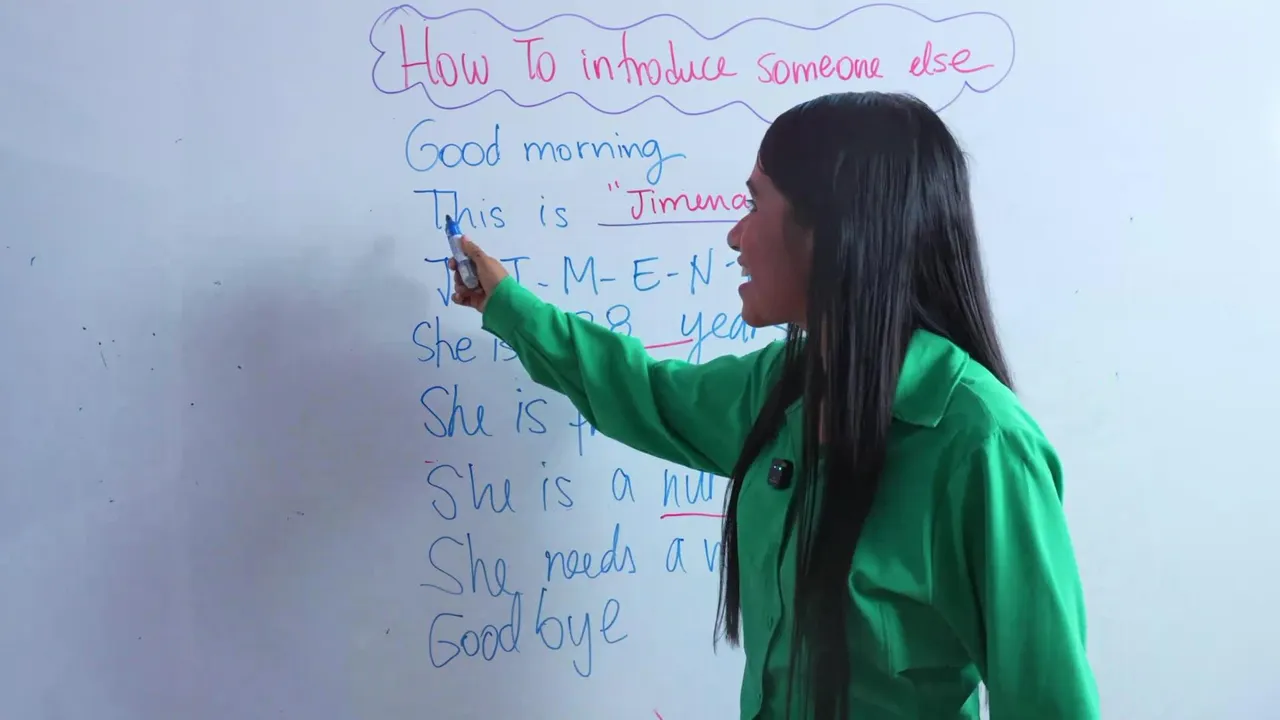 How To introduce someone else
Good morning
This is "Jimena
J I-M-E-N-
She is 28 years
She is
She is a
She needs a
Good bye